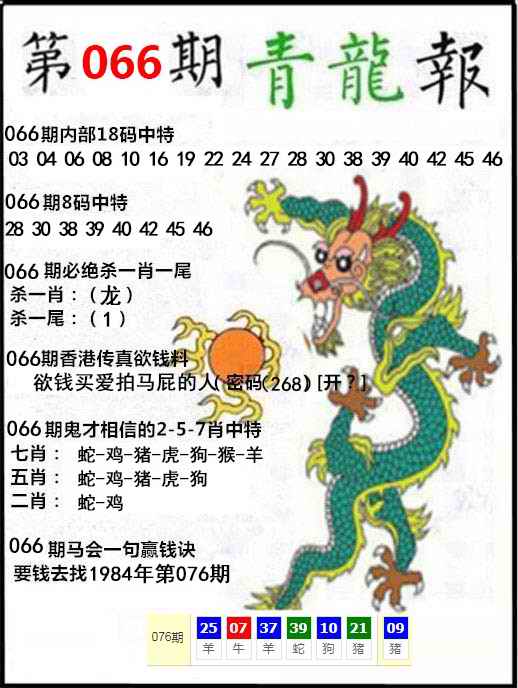 第066期青龍報
066期内部18码中特
03 04 06 08 10 16 19 22 24 27 28 30 38 39 40 42 45 46
066期8码中特
28 30 38 39 40 42 45 46
066 期必绝杀一肖一尾
杀一肖：（龙）
杀一尾：（1）
066期香港传真欲钱料
欲钱买爱拍马屁的人( 密码(268) [开？]
066 期鬼才相信的2-5-7肖中特
七肖： 蛇-鸡-猪-虎-狗-猴-羊
五肖： 蛇-鸡-猪-虎-狗
二肖： 蛇-鸡
066 期马会一句赢钱诀
要钱去找1984年第076期
076期 25 07 37 39 10 21 09
羊 牛 羊 蛇 狗 猪 猪